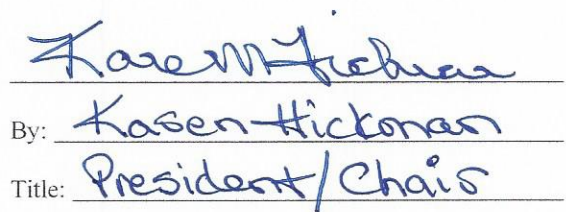 Karen Hickman
By: Karen Hickman
Title: President/Chair